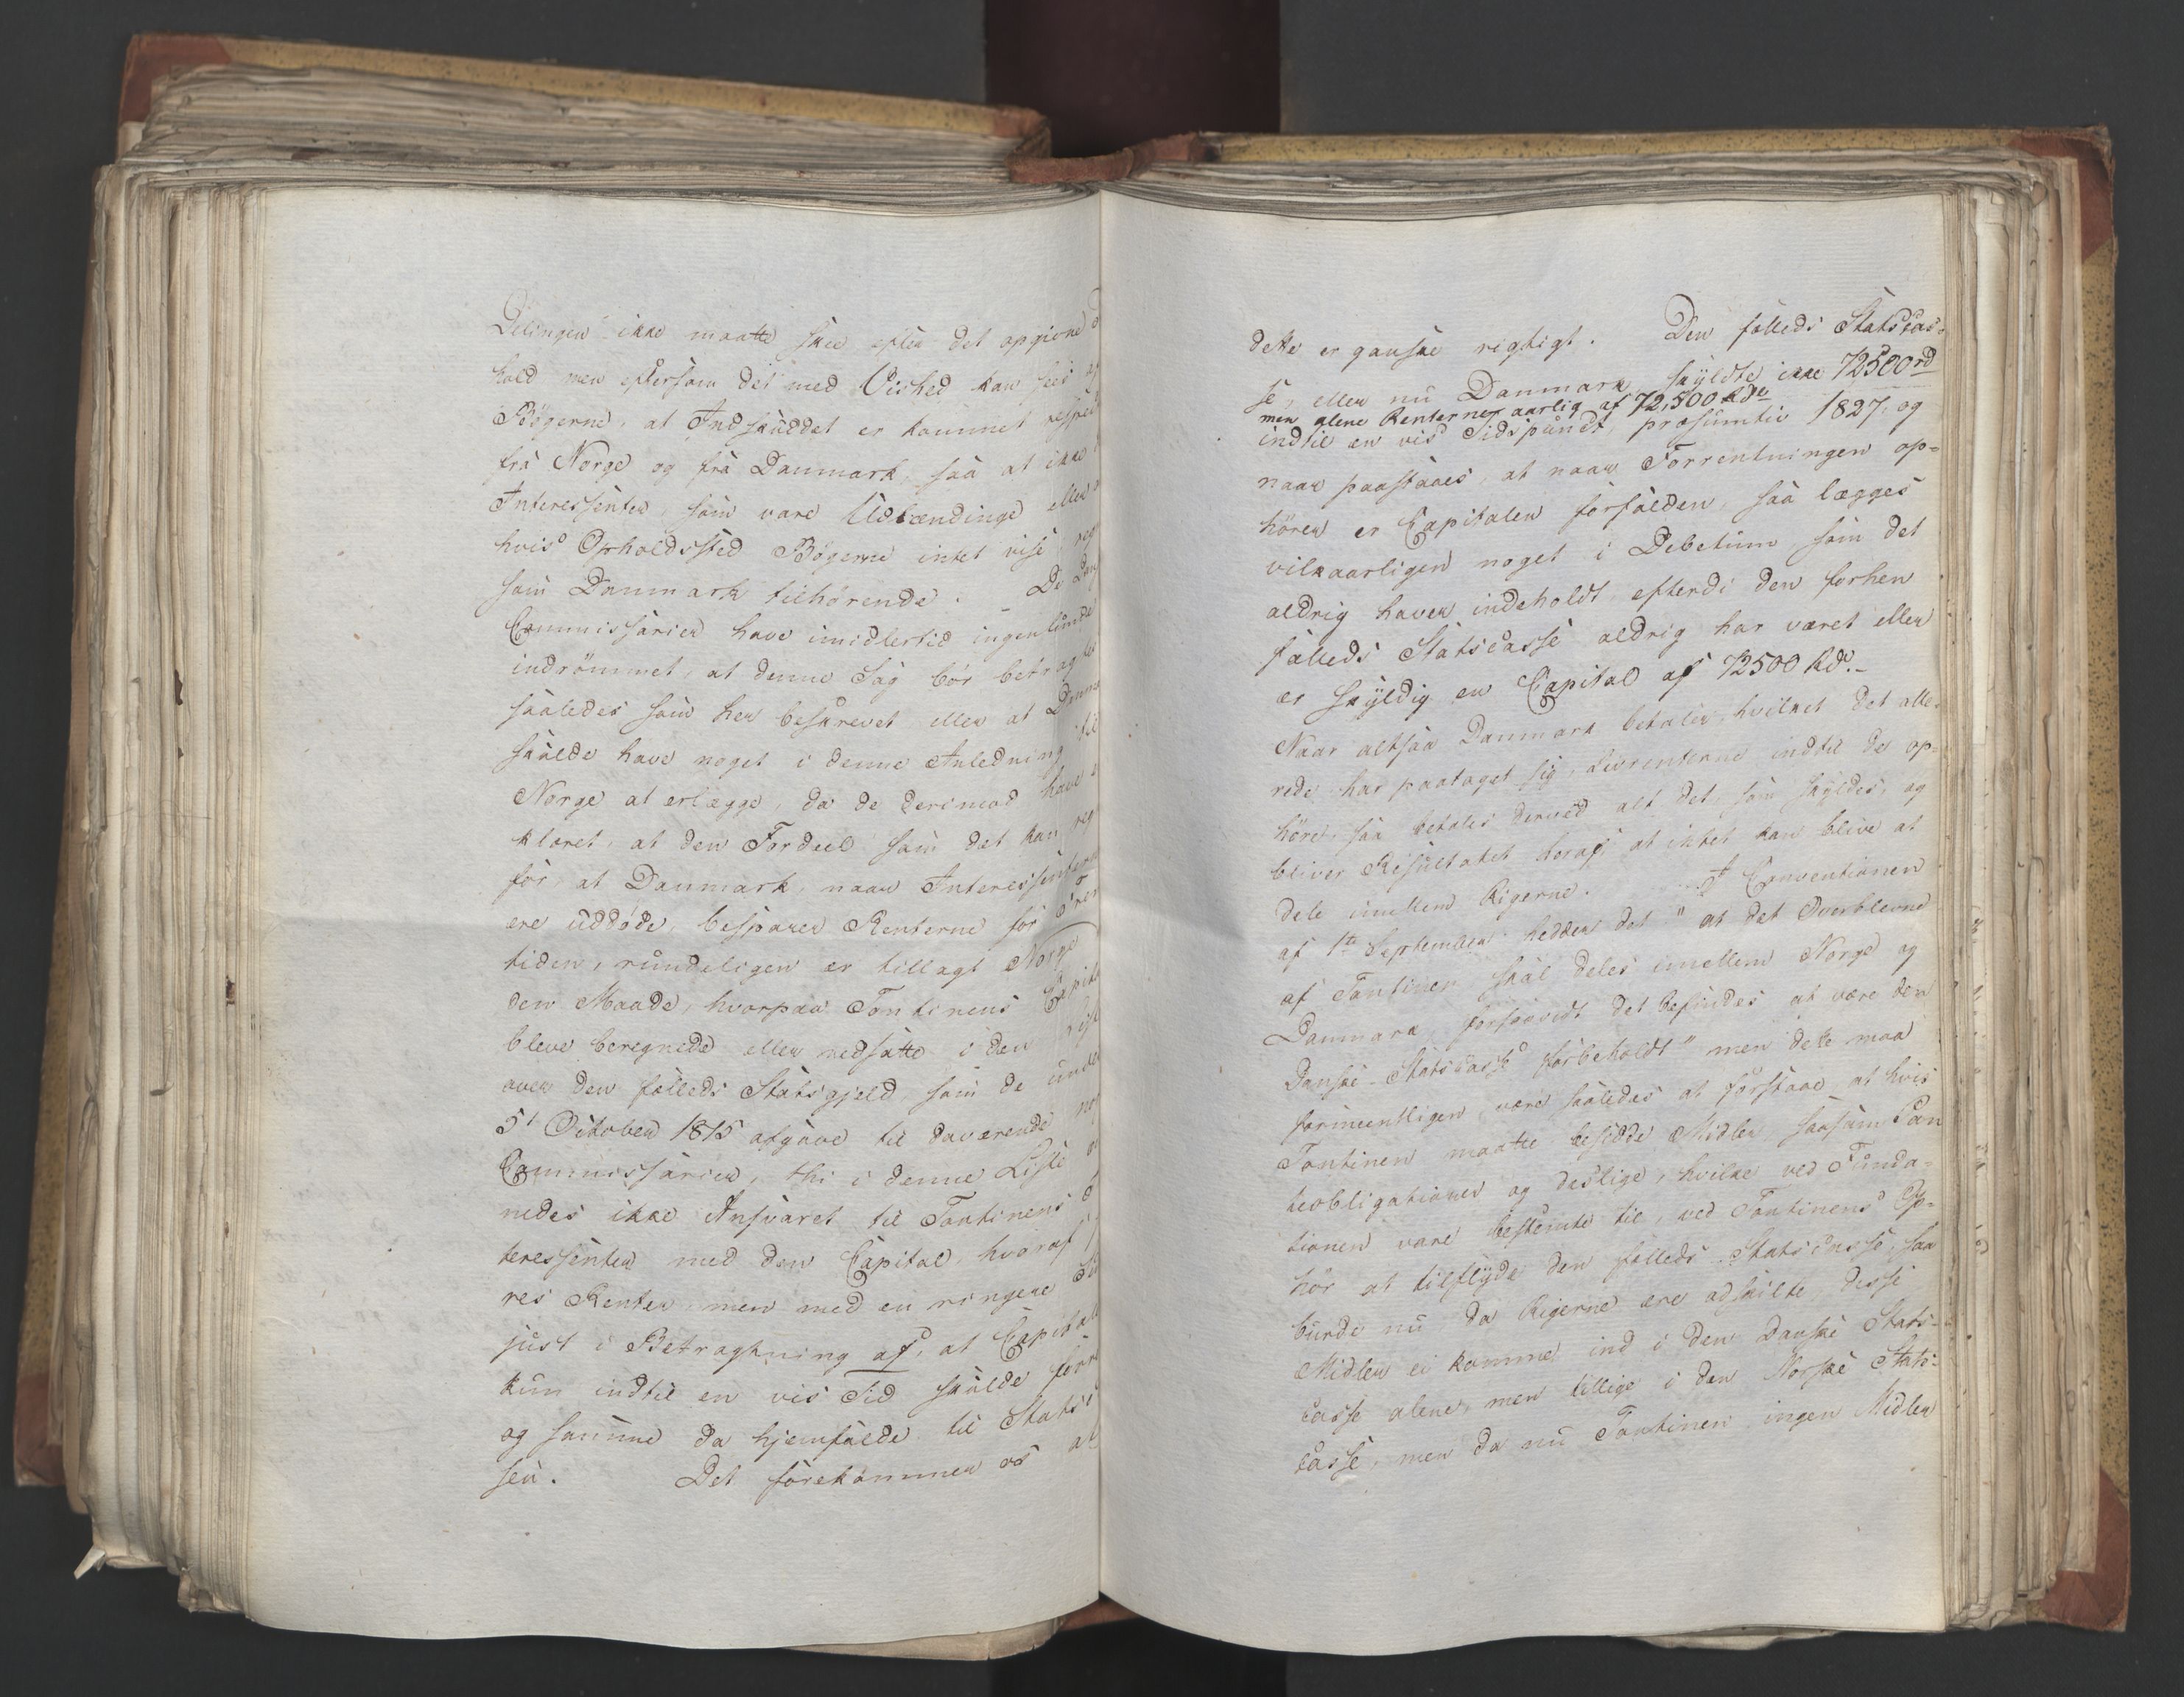 Delingen ikke maatte skee efter det opgivne
hold men eftersom det med Vished kan sees af
Bögerne, at Indskuddet er kommet respec
fra Norge og fra Danmark, saa at ikke
Interessenter, som vare Udlændinge eller
hvis Opholdssted Bögerne intet vise, reg
som Danmark tilhörende. – De Dan
Commissarier have imidlertid ingenlunde
indrömmet, at denne Sag bör betragtes
saaledes som her beskrevet eller at Danma
skulde have noget i denne Anledning til
Norge at erlægge, da de derimod have
klaret, at den Fordeel som det kan reg
for, at Danmark, naar Interessentere
ere uddöde, besparer Renterne for
tiden, rundeligen er tillagt Norge
den Maade, hvorpaa Tontinens Capita
bleve beregnede eller nedsatte i den List
over den fælleds Statsgjeld, som de unde
5t October 1815 afgave til daværende nor
Commissarier, thi i denne Liste
nedes ikke Ansvaret til Tontinens
teressenter med den Capital, hvoraf
res Renter, men med en ringere
just i Betragtning af, at Capital
kun indtil en vis Tid skulde forre
og samme da hjemfalde til Statsc
sen. Det forekommer os at
dette er ganske rigtigt. Den fælleds Statscas-
se, eller nu Danmark, skyldte ikke 72500 rd
men alene Renterne aarlig af 72,500 Rdr
indtil en vis Tidspunct, præsumtiv 1827, og
naar paastaaes, at naar Forrentningen op-
hörer er Capitalen forfalden, saa lægges
vilkaarligen noget i Debetum, som det
aldrig haver indeholdt, efterdi den forhen
fælleds Statscasse aldrig har været eller
er skyldig en Capital af 72500 Rd.–
Naar altsaa Danmark betaler, hvilket det alle-
rede har paataget sig, Livrenterne indtil de op-
höre, saa betales derved alt det, som skyldes, og
bliver Resultatet deraf, at intet kan blive at
dele imellem Rigerne. I Conventionen
af 1ste September hedder det "at det Overblevne
af Tontinen skal deles imellem Norge og
Danmark, forsaavidt det befindes at være den
Danske Statscasse forbeholdt" men dette maa
formeentligen være saaledes at forstaae, at hvis
Tontinen maatte besidde Midler, saasom Pan
teobligationer og deslige, hvilke ved Funda-
tionen vare bestemte til, ved Tontinens Op-
hör at tilflyde den fælleds Statscasse, saa
burde nu da Rigerne ere adskilte, disse
Midler ei komme ind i den Danske Stats-
casse alene, men tillige i den Norske Stats-
casse, men da nu Tontinen ingen Midler